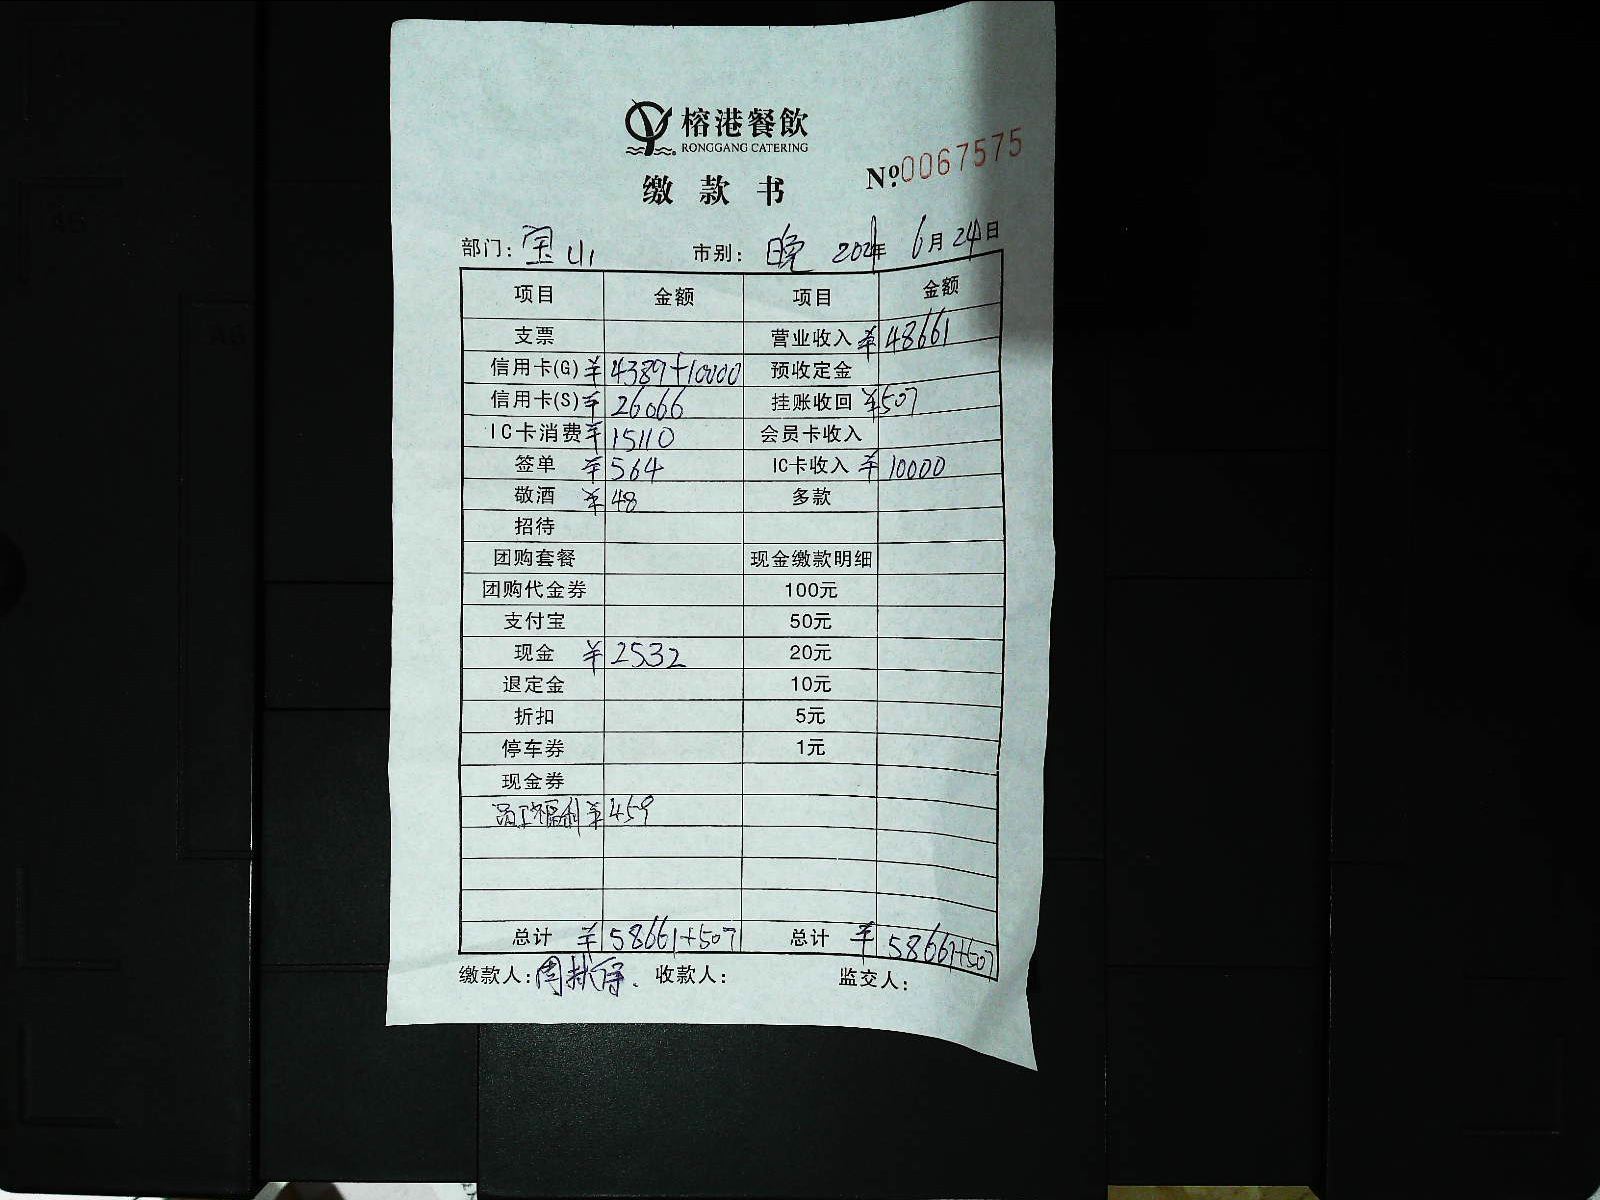 榕港餐飲
RONGGANG CATERING
缴款书 №0067575
部门：宝山 市别：晚 2021年6月24日
项目 金额 项目 金额
支票 营业收入 ¥48661
信用卡(G) ¥4389+10000 预收定金
信用卡(S) ¥26066 挂账收回 ¥507
IC卡消费 ¥15110 会员卡收入
签单 ¥564 IC卡收入 ¥10000
敬酒 ¥48 多款
招待
团购套餐 现金缴款明细
团购代金券 100元
支付宝 50元
现金 ¥2532 20元
退定金 10元
折扣 5元
停车券 1元
现金券
员工福利 ¥459
总计 ¥58661+507 总计 ¥58661+507
缴款人：周 收款人： 监交人：